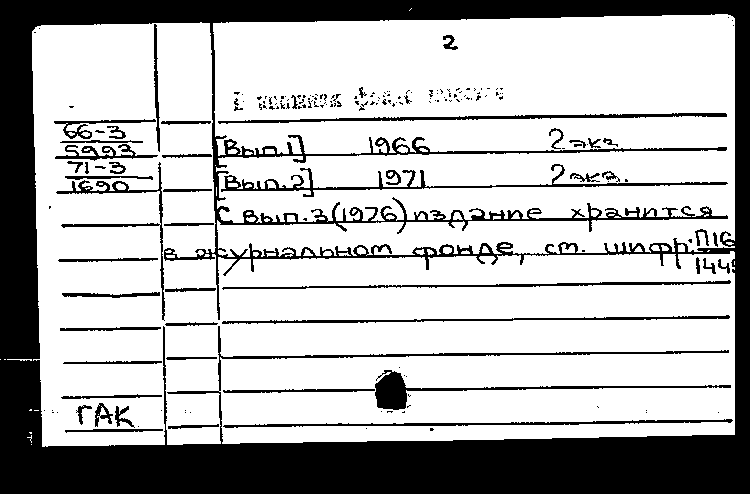 2
В книжном фонде имеются
66-3
5993 [Вып.1] 1966 2 экз.
71-3
1690 [Вып.2] 1971 2 экз.
С вып.3(1976) издание хранится
в журнальном фонде, см. шифр: П16
1449
ГАК